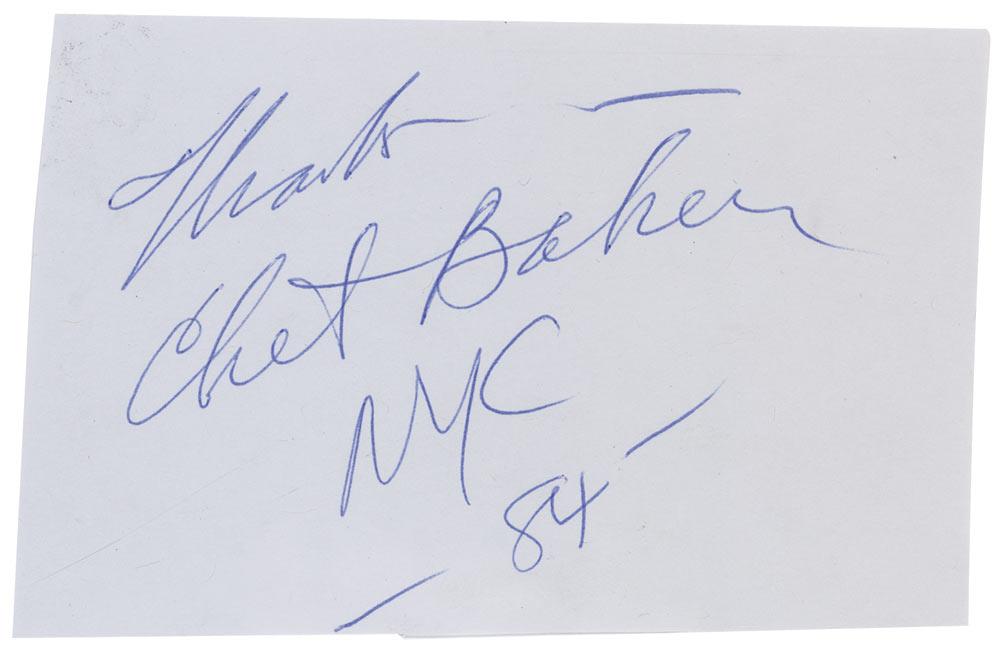 Thanks —
Chet Baker
NYC
84